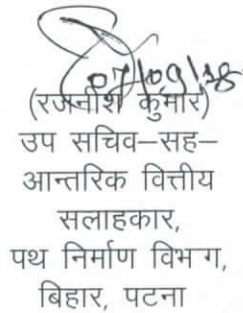 07/09/18
(रजनीश कुमार)
उप सचिव–सह–
आन्तरिक वित्तीय
सलाहकार,
पथ निर्माण विभ ग,
बिहार, पटना